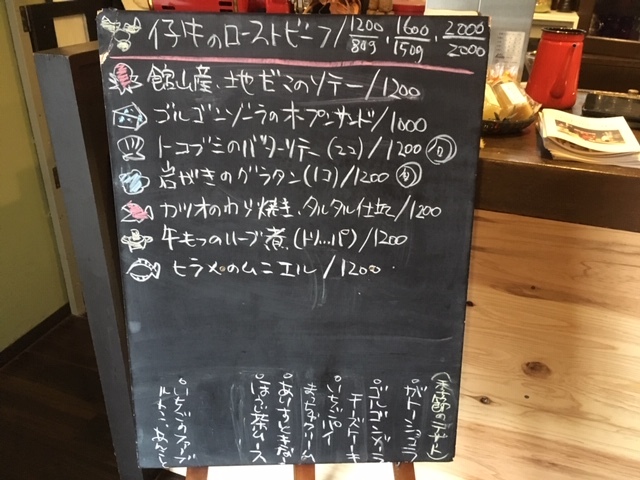 仔牛のローストビーフ/1200 80g・1600 150g・2000 2000
館山産、地ゼミのソテー/1200
ゴルゴンゾーラのオープンサンド/1000
トコブシのバターソテー(2コ)/1200 旬
岩がきのグラタン(1コ)/1200 旬
カツオのわら焼き、タルタル仕立/1200
牛もつのハーブ煮(トリッパ)/1200
ヒラメのムニエル/1200
(季節のデザート)
ガトーショコラ
ゴルゴンゾーラ
チーズケーキ
いちごパイ
まっ茶クリーム
ほうじ茶ムース